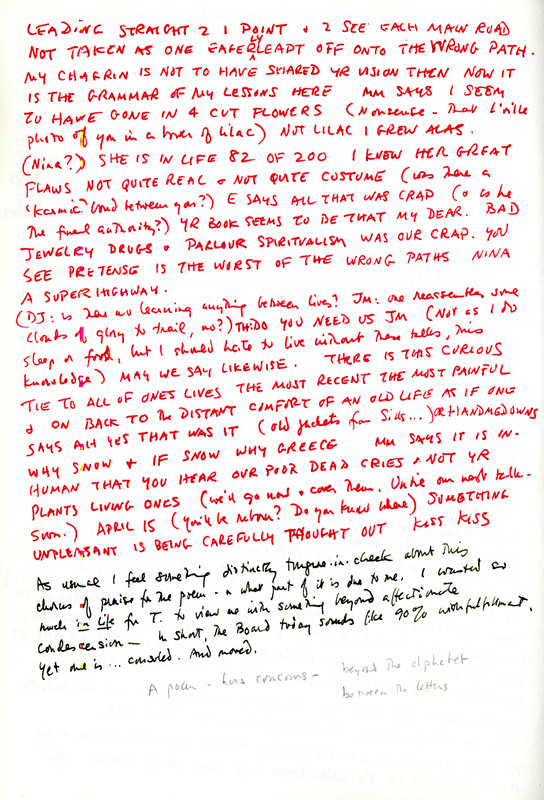 LEADING STRAIGHT 2 1 POINT & 2 SEE EACH MAIN ROAD
NOT TAKEN AS ONE EAGERLY LEAPT OFF ONTO THE WRONG PATH.
MY CHAGRIN IS NOT TO HAVE SHARED YR VISION THEN NOW IT
IS THE GRAMMAR OF MY LESSONS HERE MM SAYS I SEEM
TO HAVE GONE IN 4 CUT FLOWERS (Nonsense - That little
photo of you in a bower of lilac) NOT LILAC I GREW ALAS.
(Nina?) SHE IS IN LIFE 82 OF 200 I KNEW HER GREAT
FLAWS NOT QUITE REAL & NOT QUITE COSTUME (was there a
'karmic' bond between you?) E SAYS ALL THAT WAS CRAP (& is he
the final authority?) YR BOOK SEEMS TO BE THAT MY DEAR. BAD
JEWELRY DRUGS & PARLOUR SPIRITUALISM WAS OUR CRAP. YOU
SEE PRETENSE IS THE WORST OF THE WRONG PATHS NINA
A SUPERHIGHWAY.
(DJ: is there no learning anything between lives? JM: one reassembles some
clouds of glory to trail, no?) TH: DO YOU NEED US JM (Not as I do
sleep or food, but I should hate to live without these talks, this
knowledge) MAY WE SAY LIKEWISE. THERE IS THIS CURIOUS
TIE TO ALL OF ONES LIVES THE MOST RECENT THE MOST PAINFUL
& ON BACK TO THE DISTANT COMFORT OF AN OLD LIFE AS IF ONE
SAYS AH YES THAT WAS IT (old jackets from Sills...) OR HANDMEDOWNS
WHY SNOW & IF SNOW WHY GREECE MM SAYS IT IS IN-
HUMAN THAT YOU HEAR OUR POOR DEAD CRIES & NOT YR
PLANTS LIVING ONES (we'll go now & cover them. Until our next talk -
soon.) APRIL 15 (you'll be reborn? Do you know where) SOMETHING
UNPLEASANT IS BEING CAREFULLY THOUGHT OUT KISS KISS
As usual I feel something distinctly tongue-in-cheek about this
chorus of praise for the poem - & what part of it is due to me. I wanted so
much in life for T. to view me with something beyond affectionate
condescension — In short, the Board today sounds like 90% wishfulfillment.
Yet one is ... consoled. And moved.
A poem - has concerns - beyond the alphabet
between the letters